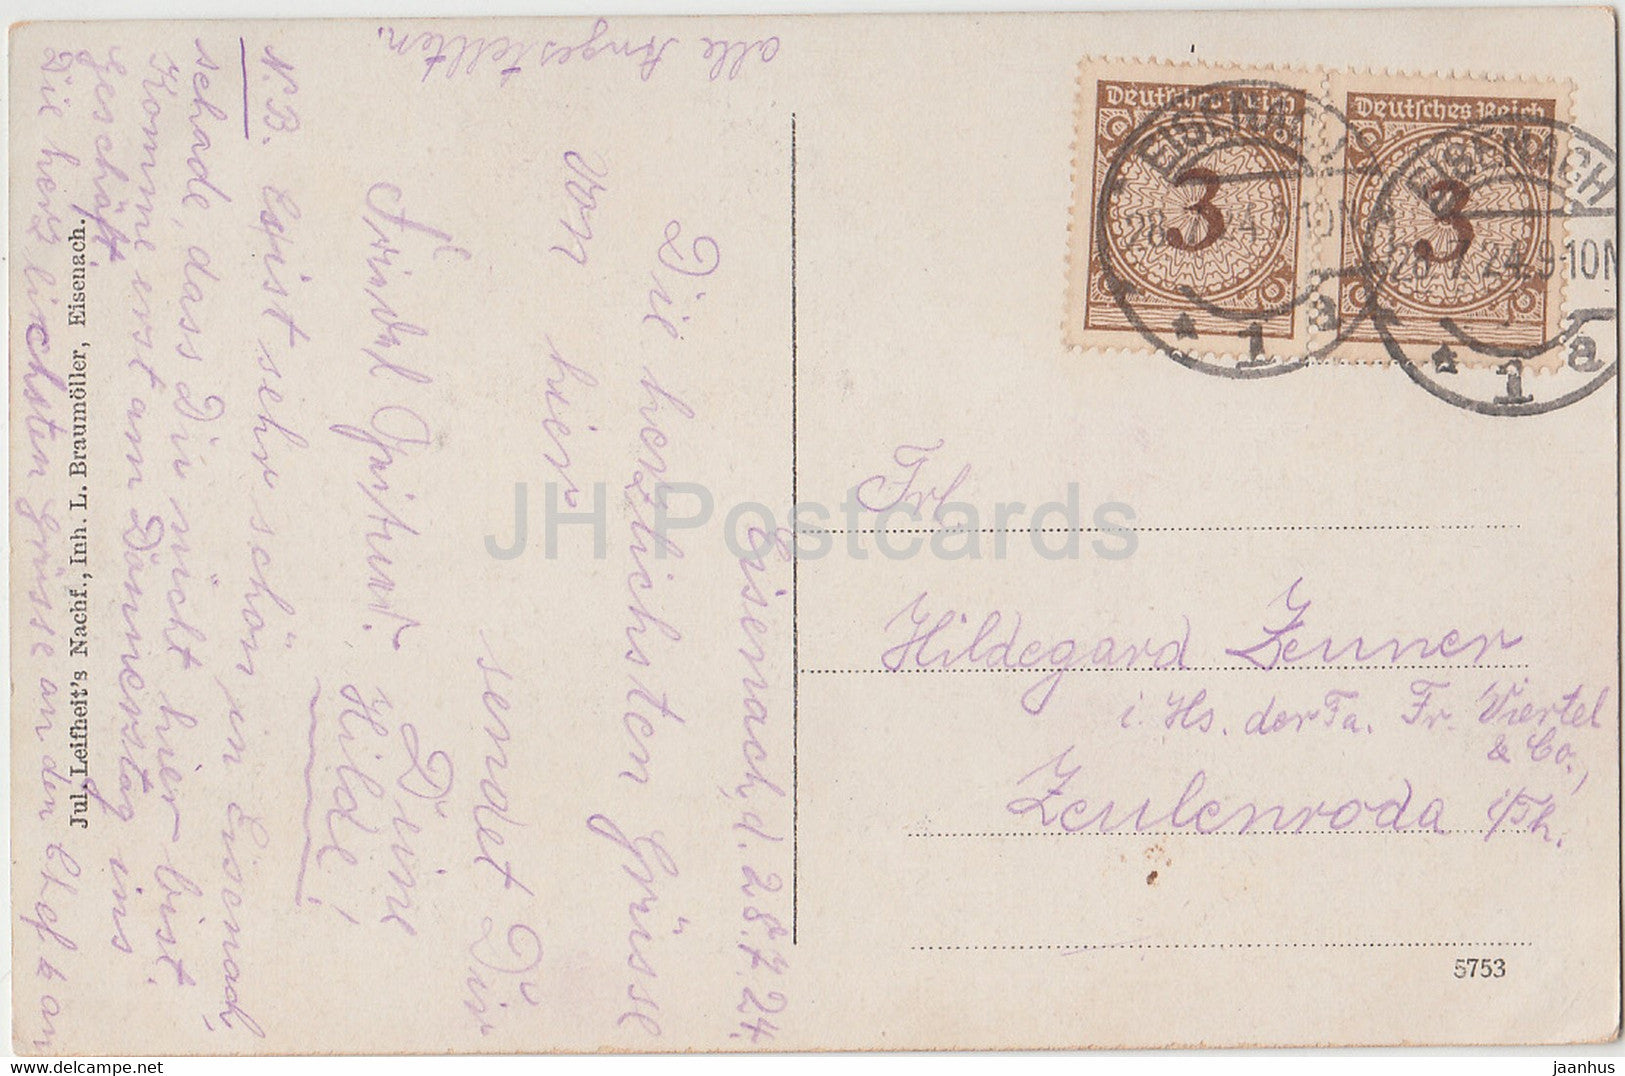 Eisenach, d. 28.7.24.
Die herzlichsten Grüsse
von hier
sendet Dir
Deine
Hilde!
N.B. Es ist sehr schön in Eisenach,
schade, dass Du nicht hier bist.
Komme erst am Donnerstag ins
Geschäft.
Die herzlichsten Grüsse an den Chef & an
alle Angestellten.
Jul. Leifheit's Nachf., Inh. L. Braumöller, Eisenach.
Deutsches Reich
3
Deutsches Reich
3
EISENACH
28.7.24.9-10N
* 1 a
EISENACH
28.7.24.9-10N
* 1 a
Frl.
Hildegard Zeuner
i. Hs. der Fa. Fr. Viertel
& Co.,
Zeulenroda i/Th.
5753
JH Postcards
www.delcampe.net
jaanhus